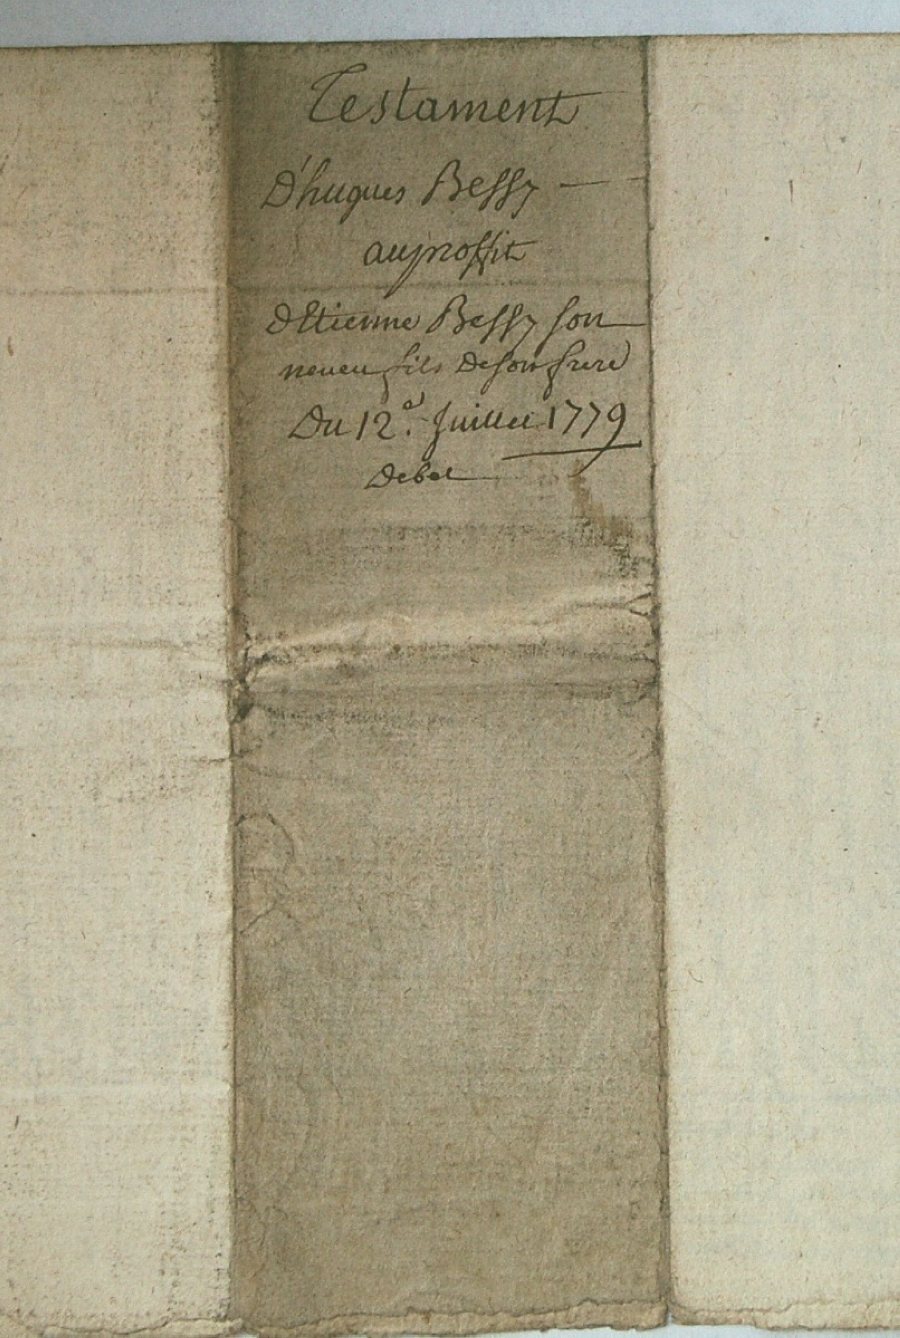 Testament
D'hugues Bessy —
auproffit
d'Etienne Bessy son
neveu fils de son frere
Du 12e. Juillet 1779
Debet